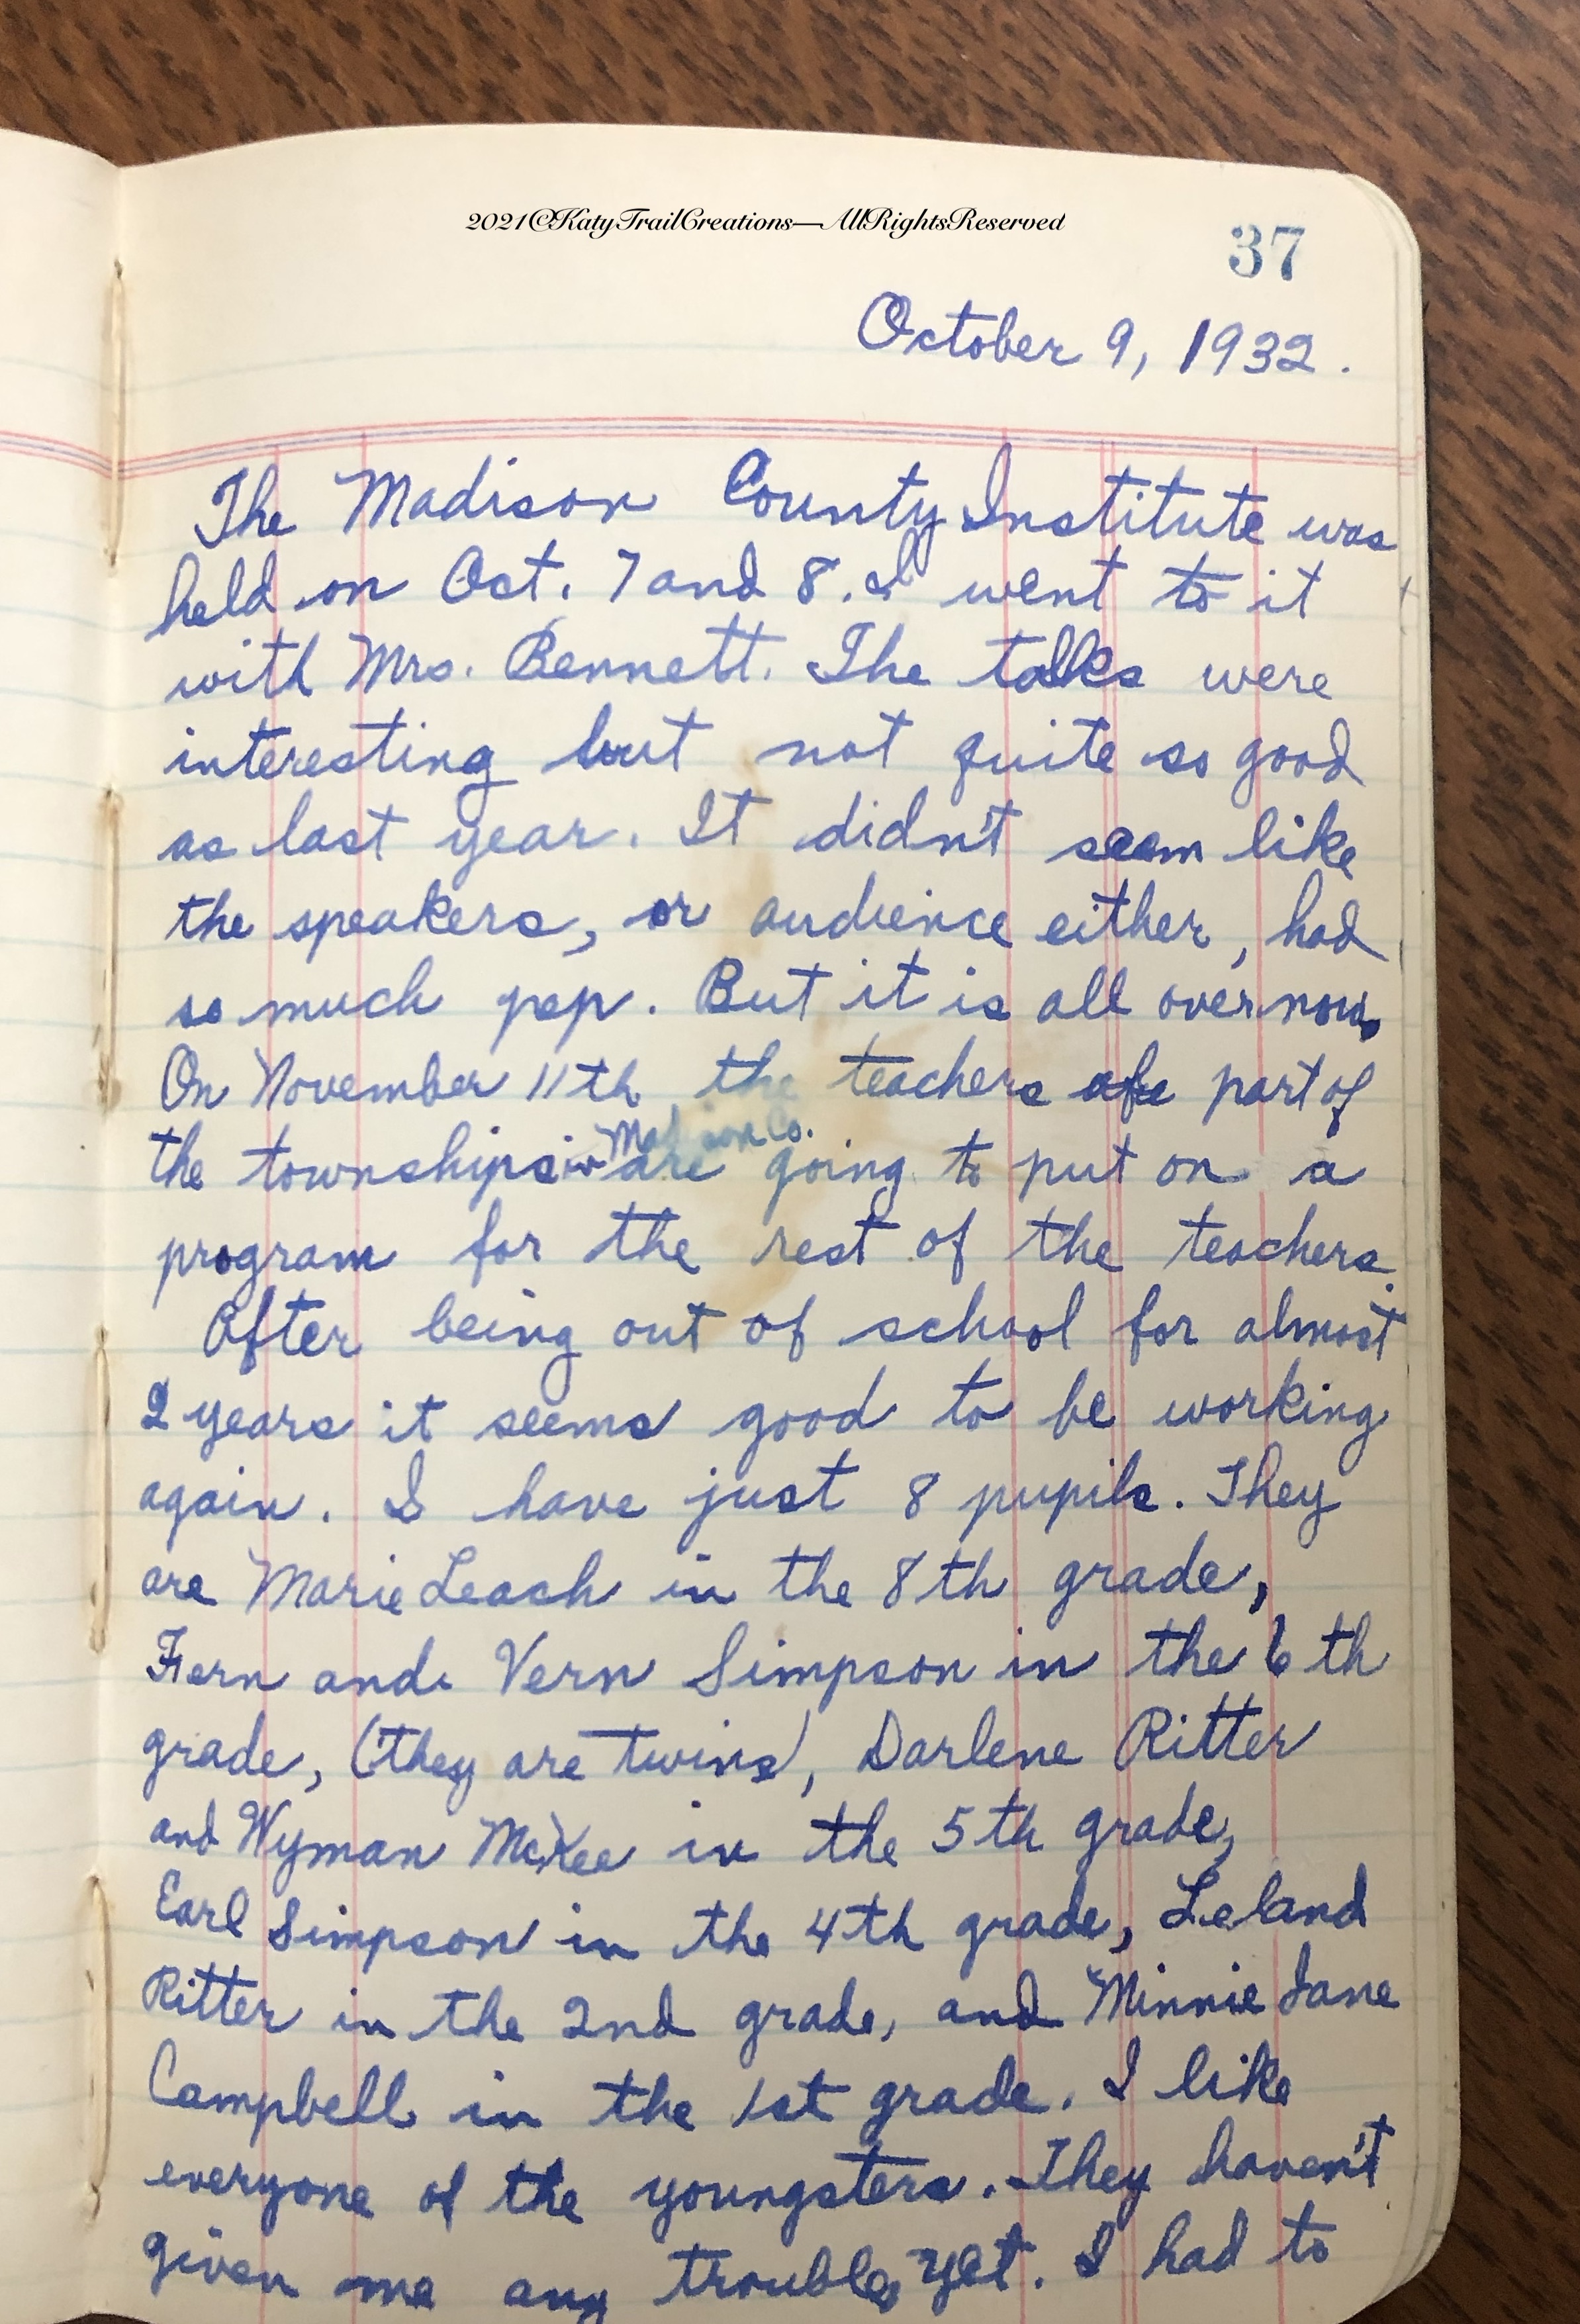 2021©KatyTrailCreations—AllRightsReserved
37
October 9, 1932.
The Madison County Institute was
held on Oct. 7 and 8. I went to it
with Mrs. Bennett. The talks were
interesting but not quite so good
as last year. It didn't seem like
the speakers, or audience either, had
so much pep. But it is all over now.
On November 11th the teachers of part of
Madison Co.
the townships in are going to put on a
program for the rest of the teachers.
After being out of school for almost
2 years it seems good to be working
again. I have just 8 pupils. They
are Marie Leach in the 8th grade,
Fern and Vern Simpson in the 6th
grade, (they are twins), Darlene Ritter
and Wyman McKee in the 5th grade,
Earl Simpson in the 4th grade, Leland
Ritter in the 2nd grade, and Minnie Jane
Campbell in the 1st grade. I like
everyone of the youngsters. They haven't
given me any trouble, yet. I had to